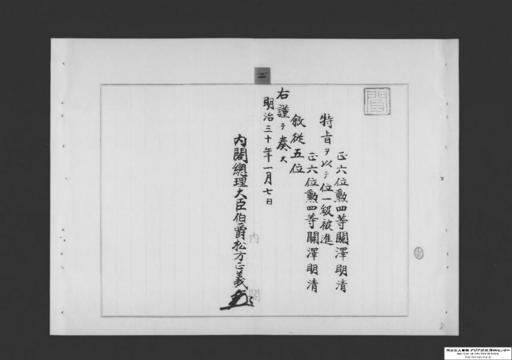 正六位勲四等關澤明清
特旨ヲ以テ位一級被進
正六位勲四等關澤明清
敘從五位
右謹テ奏ス
明治三十年一月七日
内閣總理大臣伯爵松方正義
内閣
二